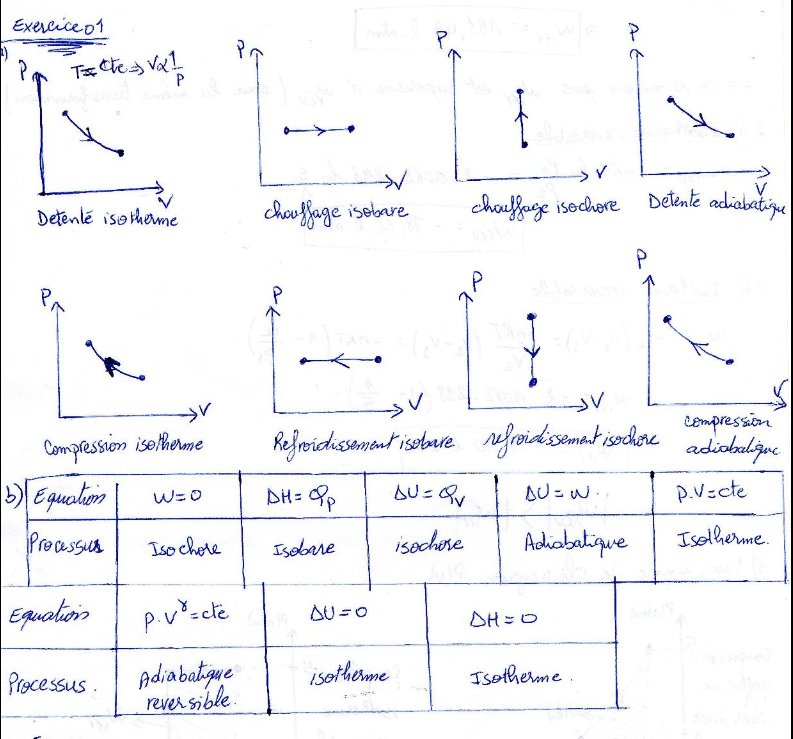 Exercice 01
T = cte ⇒ V∝1/P
P
P
P
P
V
V
V
V
Detente isotherme
chauffage isobare
chauffage isochore
Detente adiabatique
P
P
P
P
V
V
V
V
Compression isotherme
Refroidissement isobare
refroidissement isochore
compression
adiabatique
b) Equation W=0 ΔH=Qp ΔU=Qv ΔU=W. P.V=cte
Processus Isochore Isobare isochore Adiabatique Isotherme.
Equation P.V^γ=cte ΔU=0 ΔH=0
Processus. Adiabatique isotherme Isotherme.
reversible.